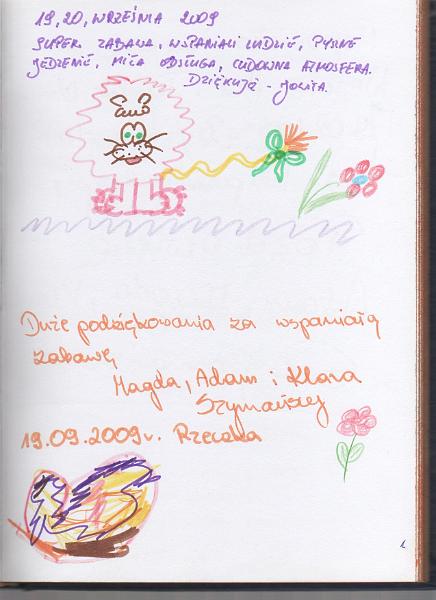 19,20, WRZEŚNIA 2009
SUPER ZABAWA, WSPANIALI LUDZIE, PYSZNE
JEDZENIE, MIŁA OBSŁUGA, CUDOWNA ATMOSFERA.
DZIĘKUJĘ - JOLITA.
Duże podziękowania za wspaniałą
zabawę
Magda, Adam i Klara
Szymańscy
19.09.2009r. Rzeczka